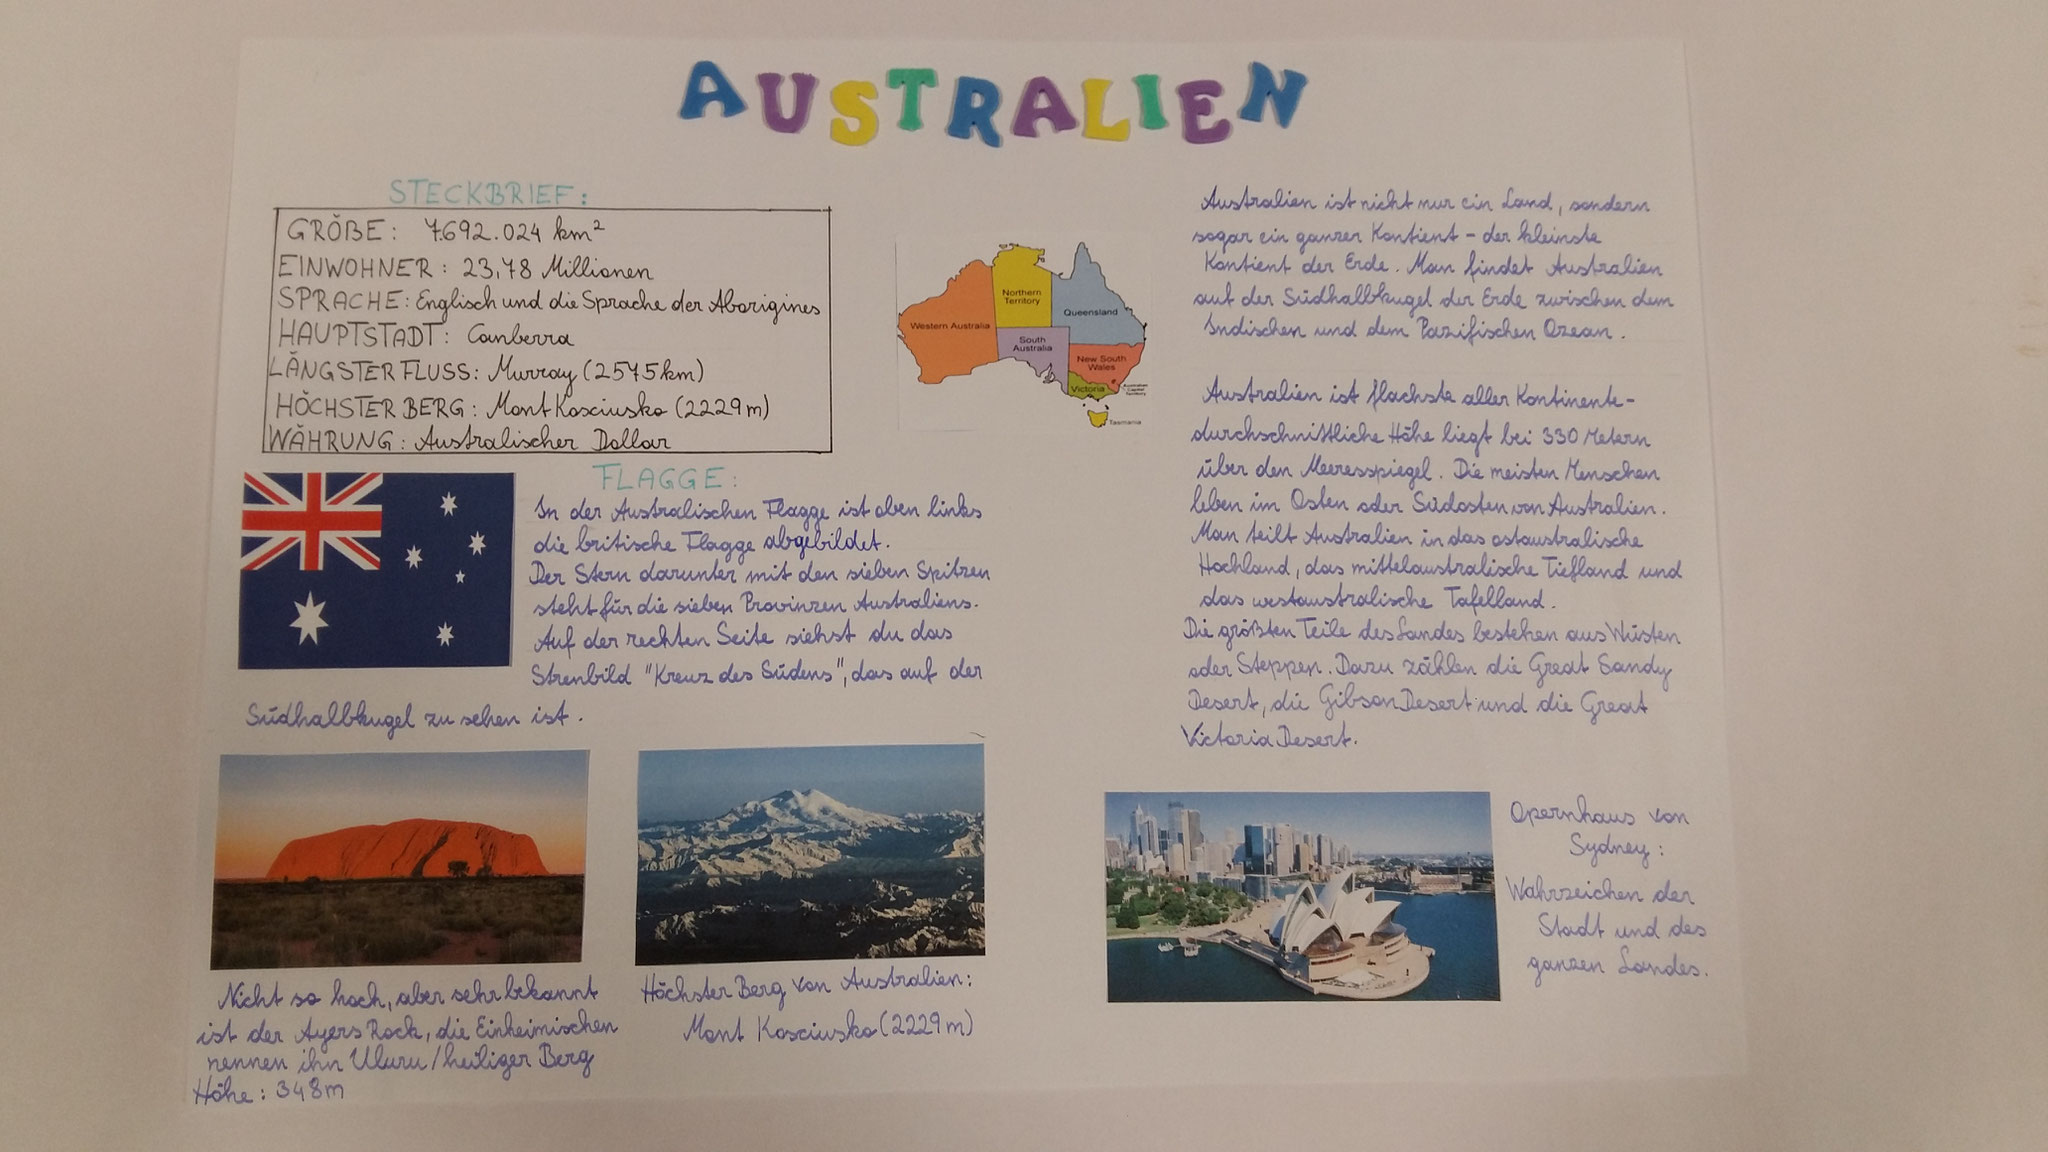 AUSTRALIEN
STECKBRIEF:
GRÖßE: 7.692.024 km²
EINWOHNER: 23,78 Millionen
SPRACHE: Englisch und die Sprache der Aborigines
HAUPTSTADT: Canberra
LÄNGSTER FLUSS: Murray (2575km)
HÖCHSTER BERG: Mont Kosciusko (2229m)
WÄHRUNG: Australischer Dollar
FLAGGE:
In der Australischen Flagge ist oben links
die britische Flagge abgebildet.
Der Stern darunter mit den sieben Spitzen
steht für die sieben Provinzen Australiens.
Auf der rechten Seite siehst du das
Strenbild "Kreuz des Südens", das auf der
Südhalbkugel zu sehen ist.
Nicht so hoch, aber sehr bekannt
ist der Ayers Rock, die Einheimischen
nennen ihn Uluru/heiliger Berg
Höhe: 348m
Höchster Berg von Australien:
Mont Kosciusko (2229m)
Northern
Territory
Western Australia
Queensland
South
Australia
New South
Wales
Victoria
Australian
Capital
Territory
Tasmania
Australien ist nicht nur ein Land, sondern
sogar ein ganzer Kontient - der kleinste
Kontient der Erde. Man findet Australien
auf der Südhalbkugel der Erde zwischen dem
Indischen und dem Pazifischen Ozean.
Australien ist flachste aller Kontinente-
durchschnittliche Höhe liegt bei 330 Metern
über den Meeresspiegel. Die meisten Menschen
leben im Osten oder Südosten von Australien.
Man teilt Australien in das ostaustralische
Hochland, das mittelaustralische Tiefland und
das westaustralische Tafelland.
Die größten Teile des Landes bestehen aus Wüsten
oder Steppen. Dazu zählen die Great Sandy
Desert, die Gibson Desert und die Great
Victoria Desert.
Opernhaus von
Sydney:
Wahrzeichen der
Stadt und des
ganzen Landes.